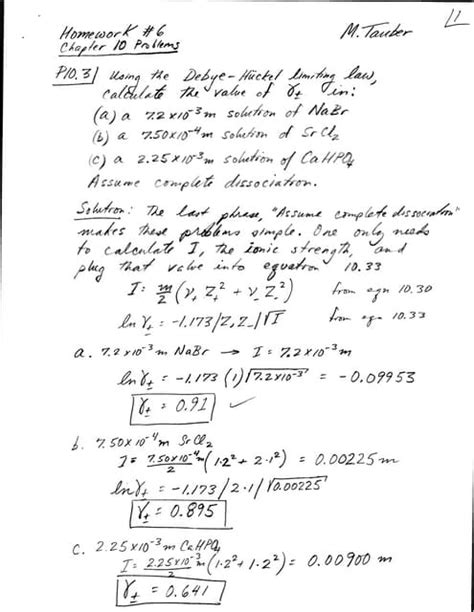 1
Homework #6
M. Tauber
Chapter 10 Problems
P10.3) Using the Debye-Hückel limiting law,
calculate the value of γ± in:
(a) a 7.2×10⁻³ m solution of NaBr
(b) a 7.50×10⁻⁴ m solution of SrCl₂
(c) a 2.25×10⁻³ m solution of CaHPO₄
Assume complete dissociation.
Solution: The last phrase, "Assume complete dissociation"
makes these problems simple. One only needs
to calculate I, the ionic strength, and
plug that value into equation 10.33
I = m/2 (ν₊ Z₊² + ν₋ Z₋²) from eqn 10.30
ln γ± = -1.173 |Z₊Z₋| √I from eqn 10.33
a. 7.2×10⁻³ m NaBr → I = 7.2×10⁻³ m
ln γ± = -1.173 (1) √7.2×10⁻³ = -0.09953
γ± = 0.91 ✓
b. 7.50×10⁻⁴ m SrCl₂
I = 7.50×10⁻⁴m/2 (1·2² + 2·1²) = 0.00225 m
ln γ± = -1.173 |2·1| √0.00225
γ± = 0.895
c. 2.25×10⁻³ m CaHPO₄
I = 2.25×10⁻³m/2 (1·2² + 1·2²) = 0.00900 m
γ± = 0.641